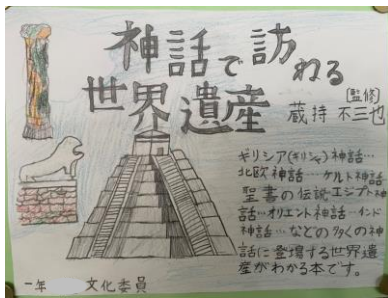 神話で訪ねる
世界遺産
[監修]
蔵持 不三也
ギリシア(ギリシャ)神話…
北欧神話…ケルト神話
聖書の伝説エジプト神
話…オリエント神話…インド
神話…などの多くの神
話に登場する世界遺
産がわかる本です。
一年 文化委員